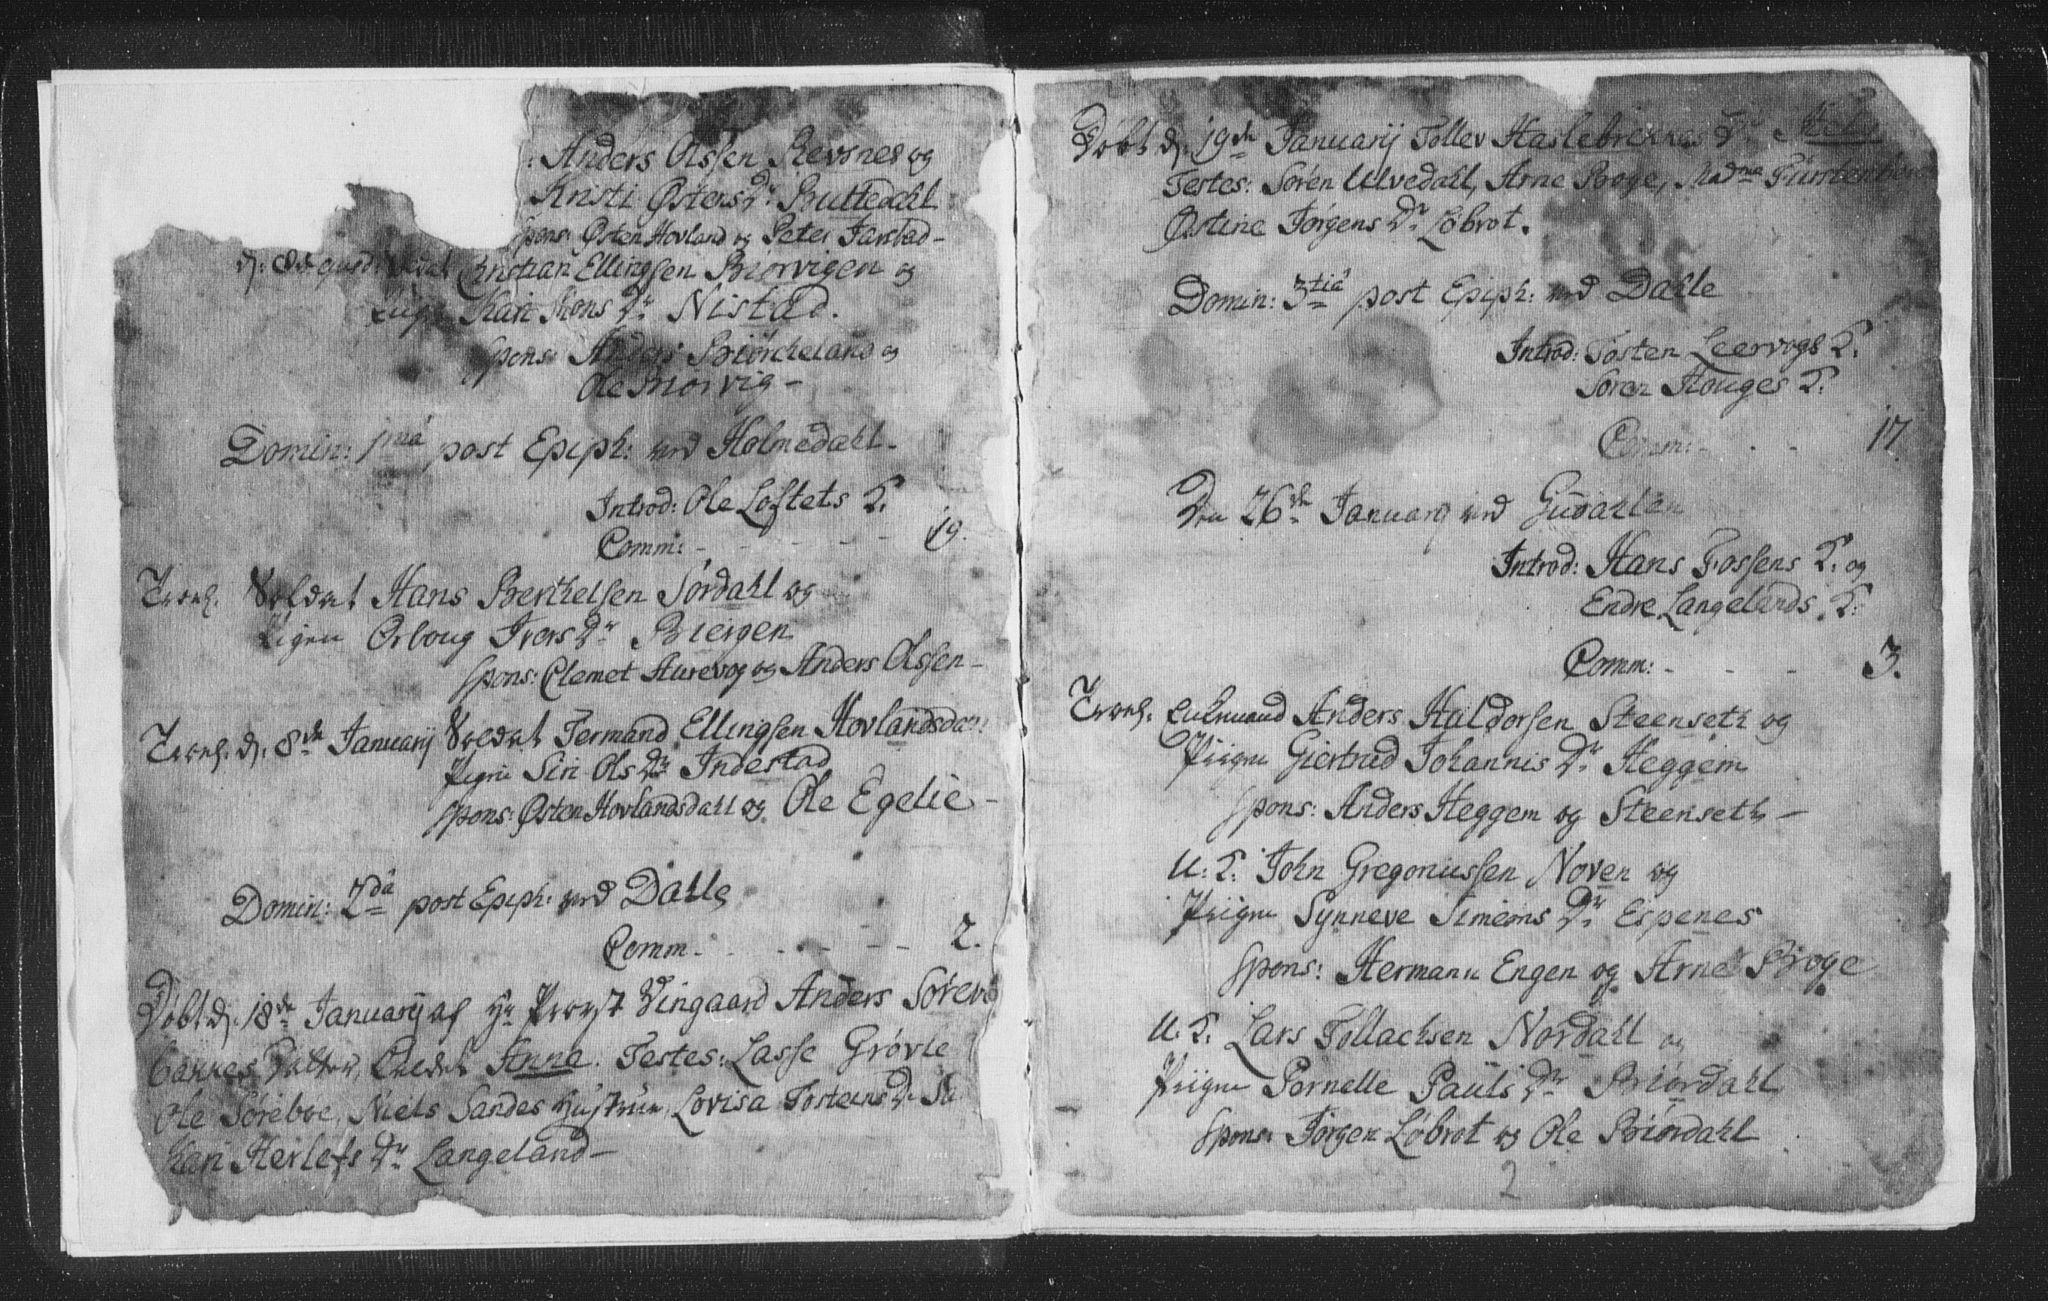 Anders Olssen Revsnes og
Kristi Østers Dr Buttedahl
Spons: Østen Hovland og Peter Jarstad –
Christian Ellingssen Biorvigen og
Kari Mons Dr Nistad.
Spons: Anders Biørcheland og
Ole Morvig –
Domin: 1ma post Epiph: ved Holmedahl –
Introd: Ole Loftets K.
Comm: - - - - - 19.
Trol. Soldat Hans Berthelsen Sørdahl og
Pigen Orboug Ivers Dr Biergen
Spons: Clemet Aurevog og Anders Olssen –
Trol. d. 8de Januarij Soldat Fermand Ellingsen Hovlandsdal
Pigen Siri Ols Dr Indestad
Spons: Østen Hovlandsdahl og Ole Egelie –
Domin: 2da post Epiph: ved Dahle
Comm. - - - - - 2.
Døbt d. 18de Januarij af Hr Provst Vingaard Anders
Datter, kaldet Anne. Testes: Lasse Grøvle
Ole Sørebøe, Niels Sandes Hustrue, Lovisa Tosteens Dr
Kari Herlefs Dr Langeland –
Døbt d. 19de Januarij Tollev Haslebrekkes Dr
Testes: Søren Ulvedahl, Arne Broge, Madme Fürstenberg
Østine Jørgens Dr Løbrot.
Domin: 3tia post Epiph: ved Dahle
Introd: Tosten Leervogs K.
Søren Houges K.
Comm: - - - 17.
Den 26de Januarij ved Guddahlen
Introd: Hans Fossens K. og
Endre Langelands K:
Comm: - - - 3.
Trol. Anders Haldorsen Steenseth og
Piigen Giertrud Johannis Dr Heggem
Spons: Anders Heggem og Steenseth –
U. K. John Gregoriussen Noven og
Piigen Synneve Simeons Dr Espenes
Spons: Hermann Engen og Arne Broge
U. K. Lars Tollachsen Nordahl og
Piigen Pernelle Pauls Dr Biørdahl
Spons: Jørgen Løbrot og Ole Biørdahl
2